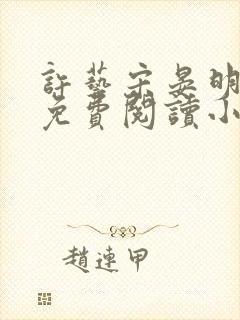 許藝宋晏明
免費閱讀小
趙連甲